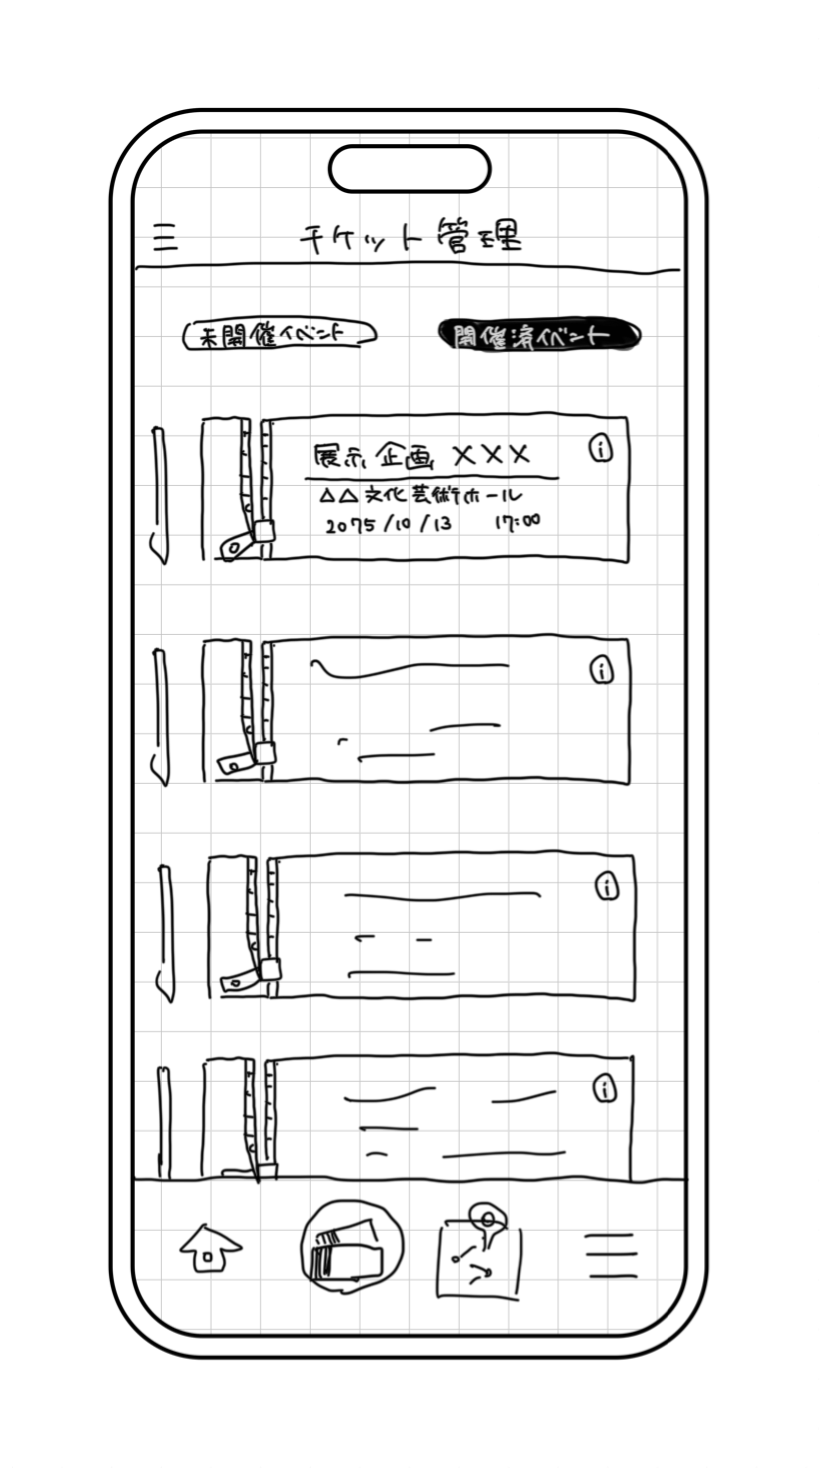 チケット管理
未開催イベント
開催済イベント
展示企画 ×××
△△文化芸術ホール
2075/10/13 17:00